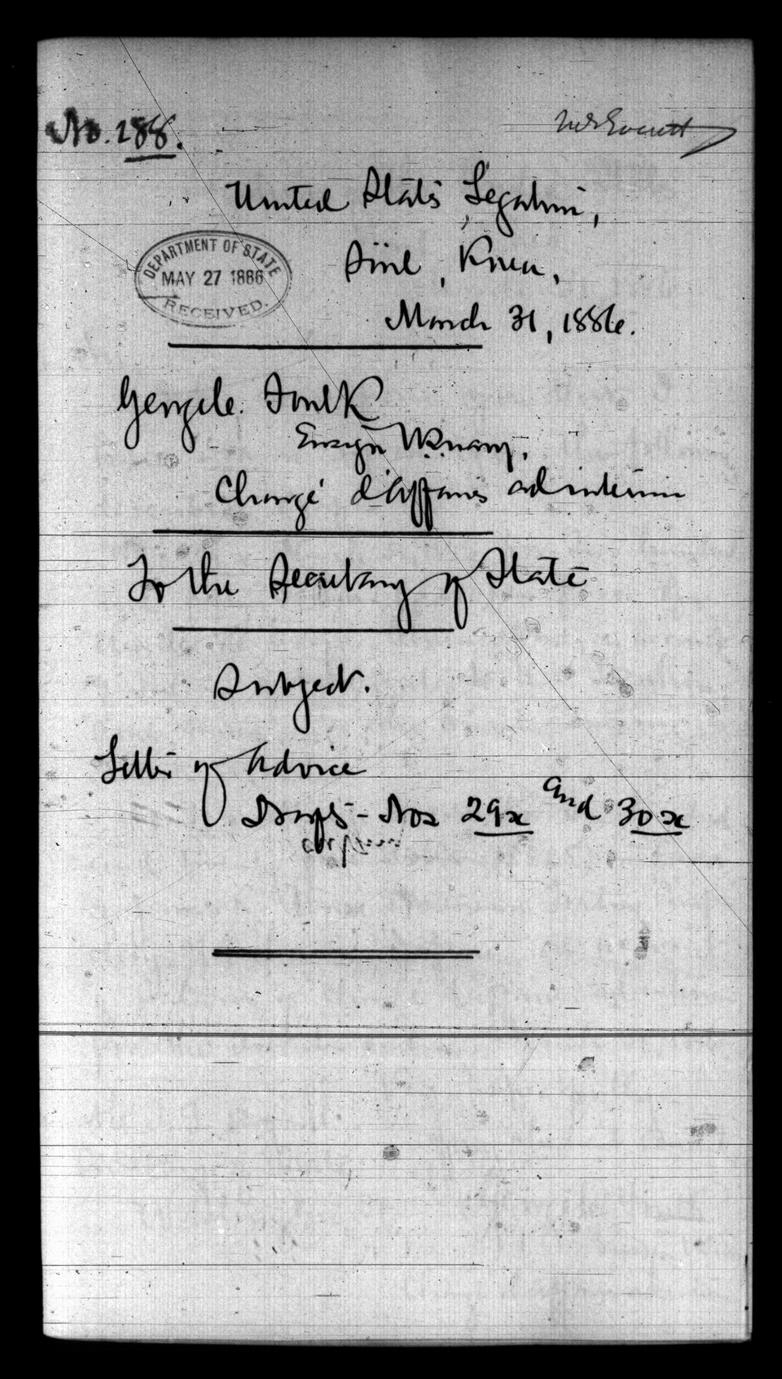 No. 288.
Mr Everett
United States Legation,
Söul, Korea,
March 31, 1886.
DEPARTMENT OF STATE
MAY 27 1886
RECEIVED.
George C. Foulk
Ensign U.S. Navy,
Chargé d'Affaires ad interim
To the Secretary of State
Subject.
Letter of Advice
Drafts - Nos 29x and 30x